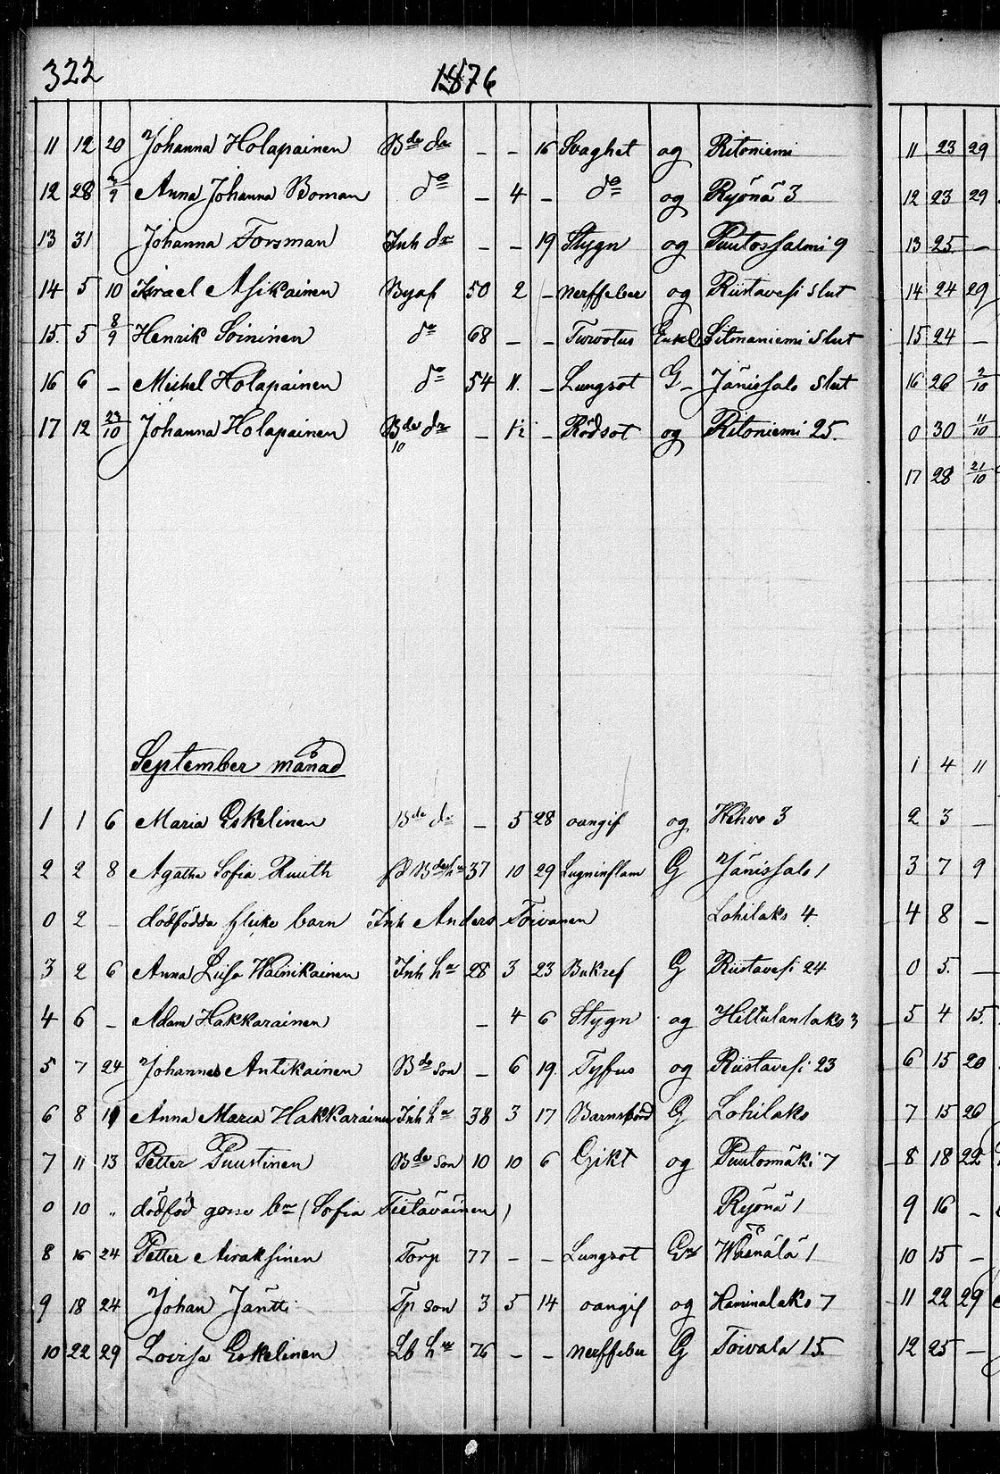 322 1876
11 12 20 Johanna Holapainen Bde dr - - 16 Svaghet og Ritoniemi
12 28 9 Anna Johanna Boman do - 4 - do og Ryönä 3
13 31 Johanna Forsman Inh dr - - 19 Stygn og Puutossalmi 9
14 5 10 Israel Asikainen Byaf 50 2 - nerffeber og Riistavesi slut
15. 5 8/9 Henrik Soininen do 68 - - Torvotus Enkl Litmaniemi slut
16 6 - Michel Holapainen do 54 11. - Lungsot G- Jänissalo slut
17 12 23/10 Johanna Holapainen Bde dr 10 - 1½ - Rödsot og Ritoniemi 25.
September månad
1 1 6 Maria Eskelinen Bde dr - 5 28 oangif og Kehvo 3
2 2 8 Agatha Sofia Ruuth 37 10 29 Lugninflam G Jänissalo 1
0 2 - dödfödda flicke barn Inh Anders Toivanen Lohilaks 4
3 2 6 Anna Lisa Wainikainen Inh hu 28 3 23 Bukref G Riistavesi 24
4 6 - Adam Hakkarainen - 4 6 Stygn og Hiltulanlaks 3
5 7 24 Johannes Antikainen Bde son - 6 19 Tyfus og Riistavesi 23
6 8 11 Anna Maria Hakkarainen Inh hu 38 3 17 Barnsbörd G Lohilaks
7 11 13 Petter Puustinen Bde son 10 10 6 Gikt og Puutosmäki 7
0 10 " dödföd gosse bn (Sofia Tietäväinen) Ryönä 1
8 16 24 Petter Airaksinen Torp 77 - - Lungsot 1
9 18 24 Johan Jäntti Tp son 3 5 14 oangif og Haminalaks 7
10 22 29 Lovisa Eskelinen Lb hu 76 - - nerffeber G Toivala 15
11 23 29
12 23 29
13 25. -
14 24 29
15 24 -
16 26 2/10
0 30 11/10
17 28 21/10
1 4 11
2 3 -
3 7 9
4 8 -
0 5. -
5 4 15.
6 15 20
7 15 26
8 18 22
9 16 -
10 15 -
11 22 29
12 25 -